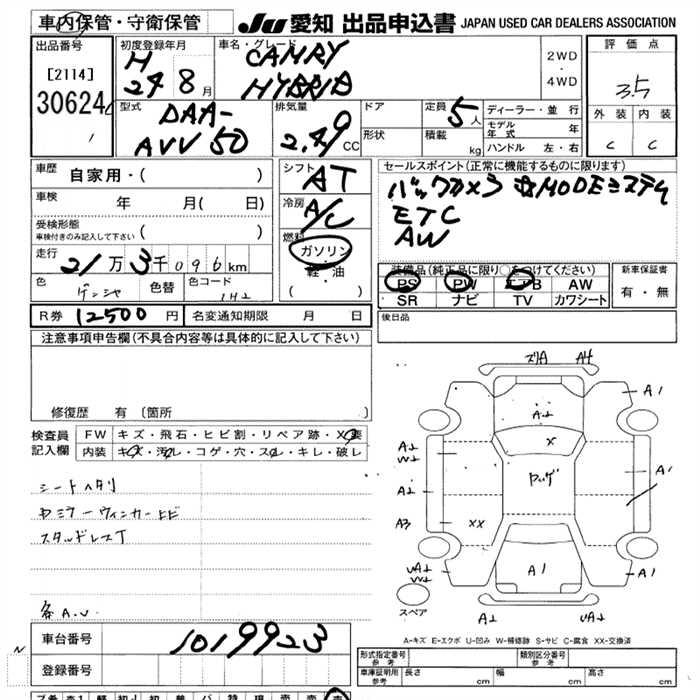 車内保管・守衛保管
JU 愛知 出品申込書 JAPAN USED CAR DEALERS ASSOCIATION
出品番号
[2114]
30624
初度登録年月
H
24 8月
車名・グレード
CAMRY
HYBRID
2WD
・
4WD
評価点
3.5
外装 内装
C C
型式
DAA-
AVV50
排気量
2.49 CC
ドア
形状
定員 5人
積載 kg
ディーラー・並行
モデル年式 年
ハンドル 左・右
車歴
自家用・( )
車検 年 月( 日)
受検形態
車検付きのみ記入して下さい ( )
走行
21万3千096km
色 色替 色コード
1H2
R券 12500円 名変通知期限 月 日
シフト
AT
冷房
A/C
燃料
ガソリン
・
軽・油
( )
セールスポイント(正常に機能するものに限ります)
バックカメラ
ETC
AW
装備品(純正品に限り○をつけてください)
PS PW エアB AW
SR ナビ TV カワシート
新車保証書
有・無
後日品
注意事項申告欄(不具合内容等は具体的に記入して下さい)
修復歴 有(箇所
検査員記入欄
FW キズ・飛石・ヒビ割・リペア跡・X要
内装 キズ・汚れ・コゲ・穴・スレ・キレ・破レ
シートヘタリ
スタッドレスT
ズリA A4
A1
A2
X
A2
W2
A2
A3
XX
ヤッゲ
A1
A1
A1
UA2
W2
A2
UA2
スペア
A-キズ E-エクボ U-凹み W-補修跡 S-サビ C-腐食 XX-交換済
車台番号 1019923
登録番号
形式指定番号 参考
類別区分番号 参考
車庫証明用 参考 長さ cm 幅 cm 高さ cm